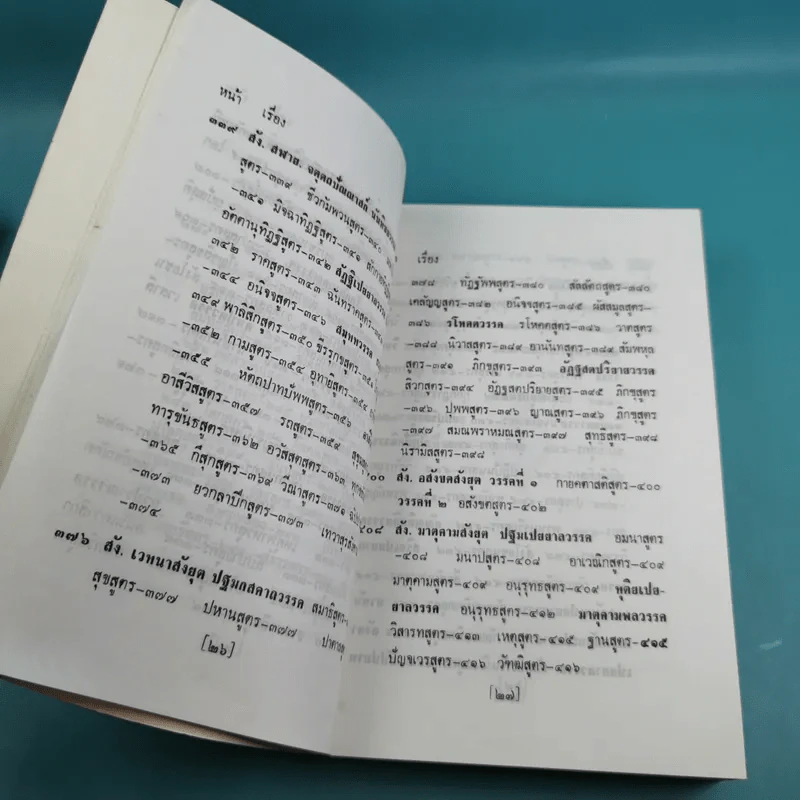 หน้า เรื่อง
๓๓๙ สัง. สฬาย. จตุตถปัณณาสก์
สูตร-๓๓๙ ชีวกัมพวนสูตร-๓๔๐
-๓๔๑ มิจฉาทิฏฐิสูตร-๓๔๑
อัตตานุทิฏฐิสูตร-๓๔๒ สัฏฐิเปยยาลวรรค
๓๔๒ ราคสูตร-๓๔๓ ฉันทราคสูตร-
-๓๔๔ อนิจจสูตร-๓๔๖ สมุททวรรค
๓๔๙ พาลิสิกสูตร-๓๕๐ ขีรรุกขสูตร-๓๕๑
-๓๕๒ กามสูตร-๓๕๔ อุทายิสูตร-๓๕๔
-๓๕๕ หัตถปาทปัพพสูตร-๓๕๖
อาสีวิสสูตร-๓๕๗ รถสูตร-๓๕๙
ทารุขันธสูตร-๓๖๒ อวัสสุตสูตร-๓๖๓
๓๖๕ กึสุกสูตร-๓๖๙ วีณาสูตร-๓๗๑
-๓๗๓ ยวกลาปิกสูตร-๓๗๓
๓๗๔
๓๗๖ สัง. เวทนาสังยุต ปฐมกสคาถวรรค สมาธิสูตร-
สุขสูตร-๓๗๗ ปหานสูตร-๓๗๗
[๒๖]
เรื่อง
๓๗๘ ทัฏฐัพพสูตร-๓๘๐ สัลลัตถสูตร-๓๘๐
เคลัญญสูตร-๓๘๒ อนิจจสูตร-๓๘๕ ผัสสมูลสูตร-
๓๘๖ รโหคตวรรค รโหคตสูตร-๓๘๖ วาตสูตร
-๓๘๘ นิวาสสูตร-๓๘๙ อานันทสูตร-๓๘๙ สัมพหุล
สูตร-๓๙๑ ภิกขุสูตร-๓๙๓ อัฏฐสตปริยายวรรค
สีวกสูตร-๓๙๔ อัฏฐสตปริยายสูตร-๓๙๕ ภิกขุสูตร
-๓๙๖ ปุพพสูตร-๓๙๖ ญาณสูตร-๓๙๖ ภิกขุสูตร
-๓๙๗ สมณพราหมณสูตร-๓๙๗ สุทธิสูตร-๓๙๘
นิรามิสสูตร-๓๙๘
๔๐๐ สัง. อสังขตสังยุต วรรคที่ ๑ กายคตาสติสูตร-๔๐๐
วรรคที่ ๒ อสังขตสูตร-๔๐๒
๔๐๘ สัง. มาตุคามสังยุต ปฐมเปยยาลวรรค อมนาสูตร
-๔๐๘ มนาปสูตร-๔๐๘ อาเวณิกสูตร-๔๐๙
มาตุคามสูตร-๔๐๙ อนุรุทธสูตร-๔๐๙ ทุติยเปย-
ยาลวรรค อนุรุทธสูตร-๔๑๒ มาตุคามพลวรรค
วิสารทสูตร-๔๑๓ เหตุสูตร-๔๑๕ ฐานสูตร-๔๑๕
ปัญจเวรสูตร-๔๑๖ วัฑฒิสูตร-๔๑๖
[๒๗]